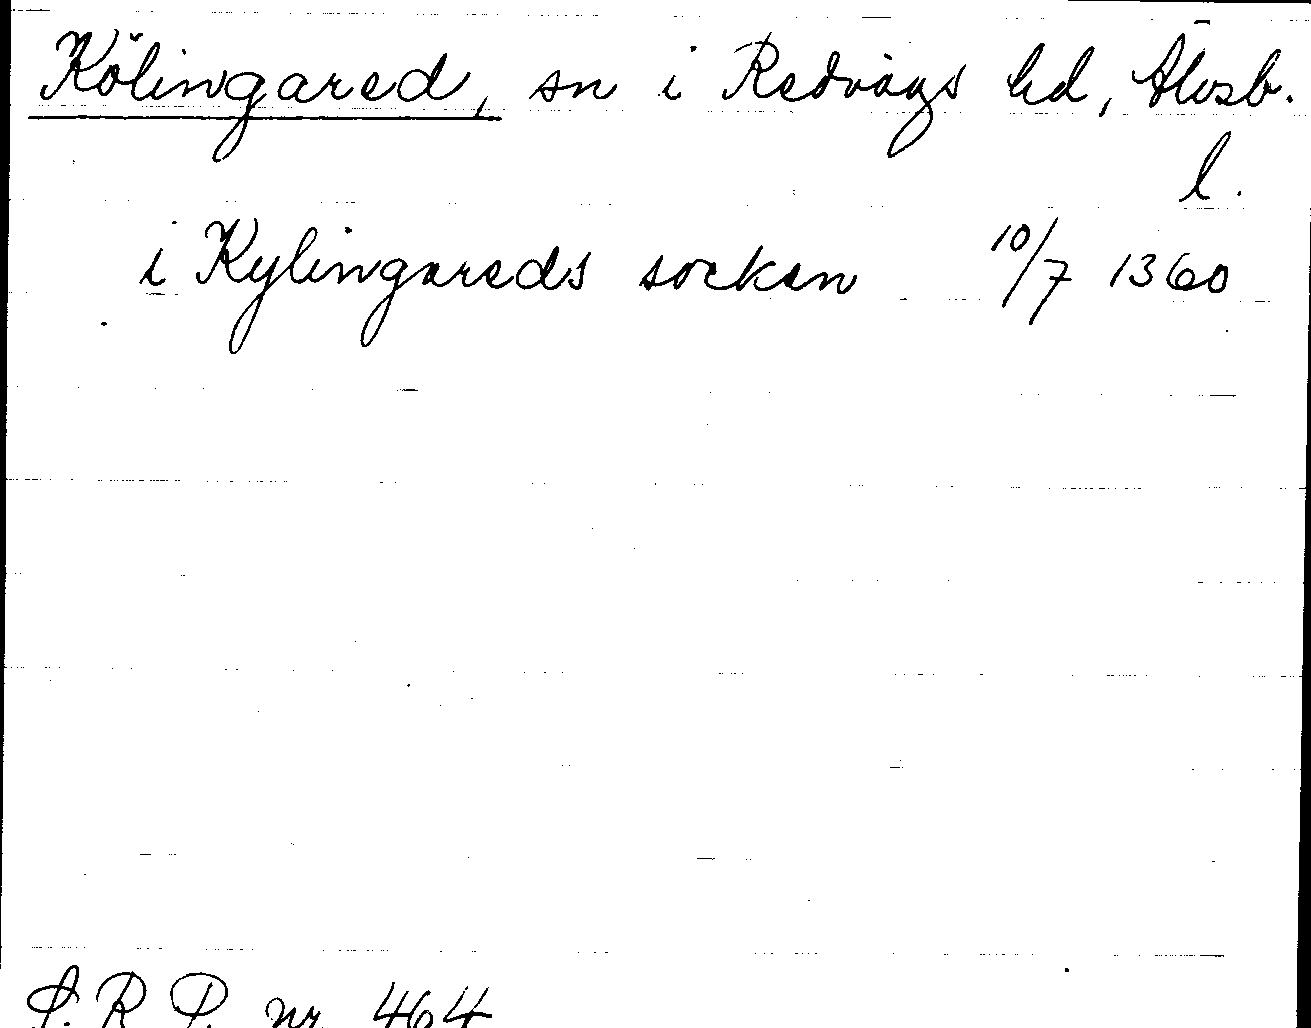 Kölingared, sn i Redvägs hd, Älvsb.
l.
i Kylingareds socken 10/7 1360
S. R. P. nr 464